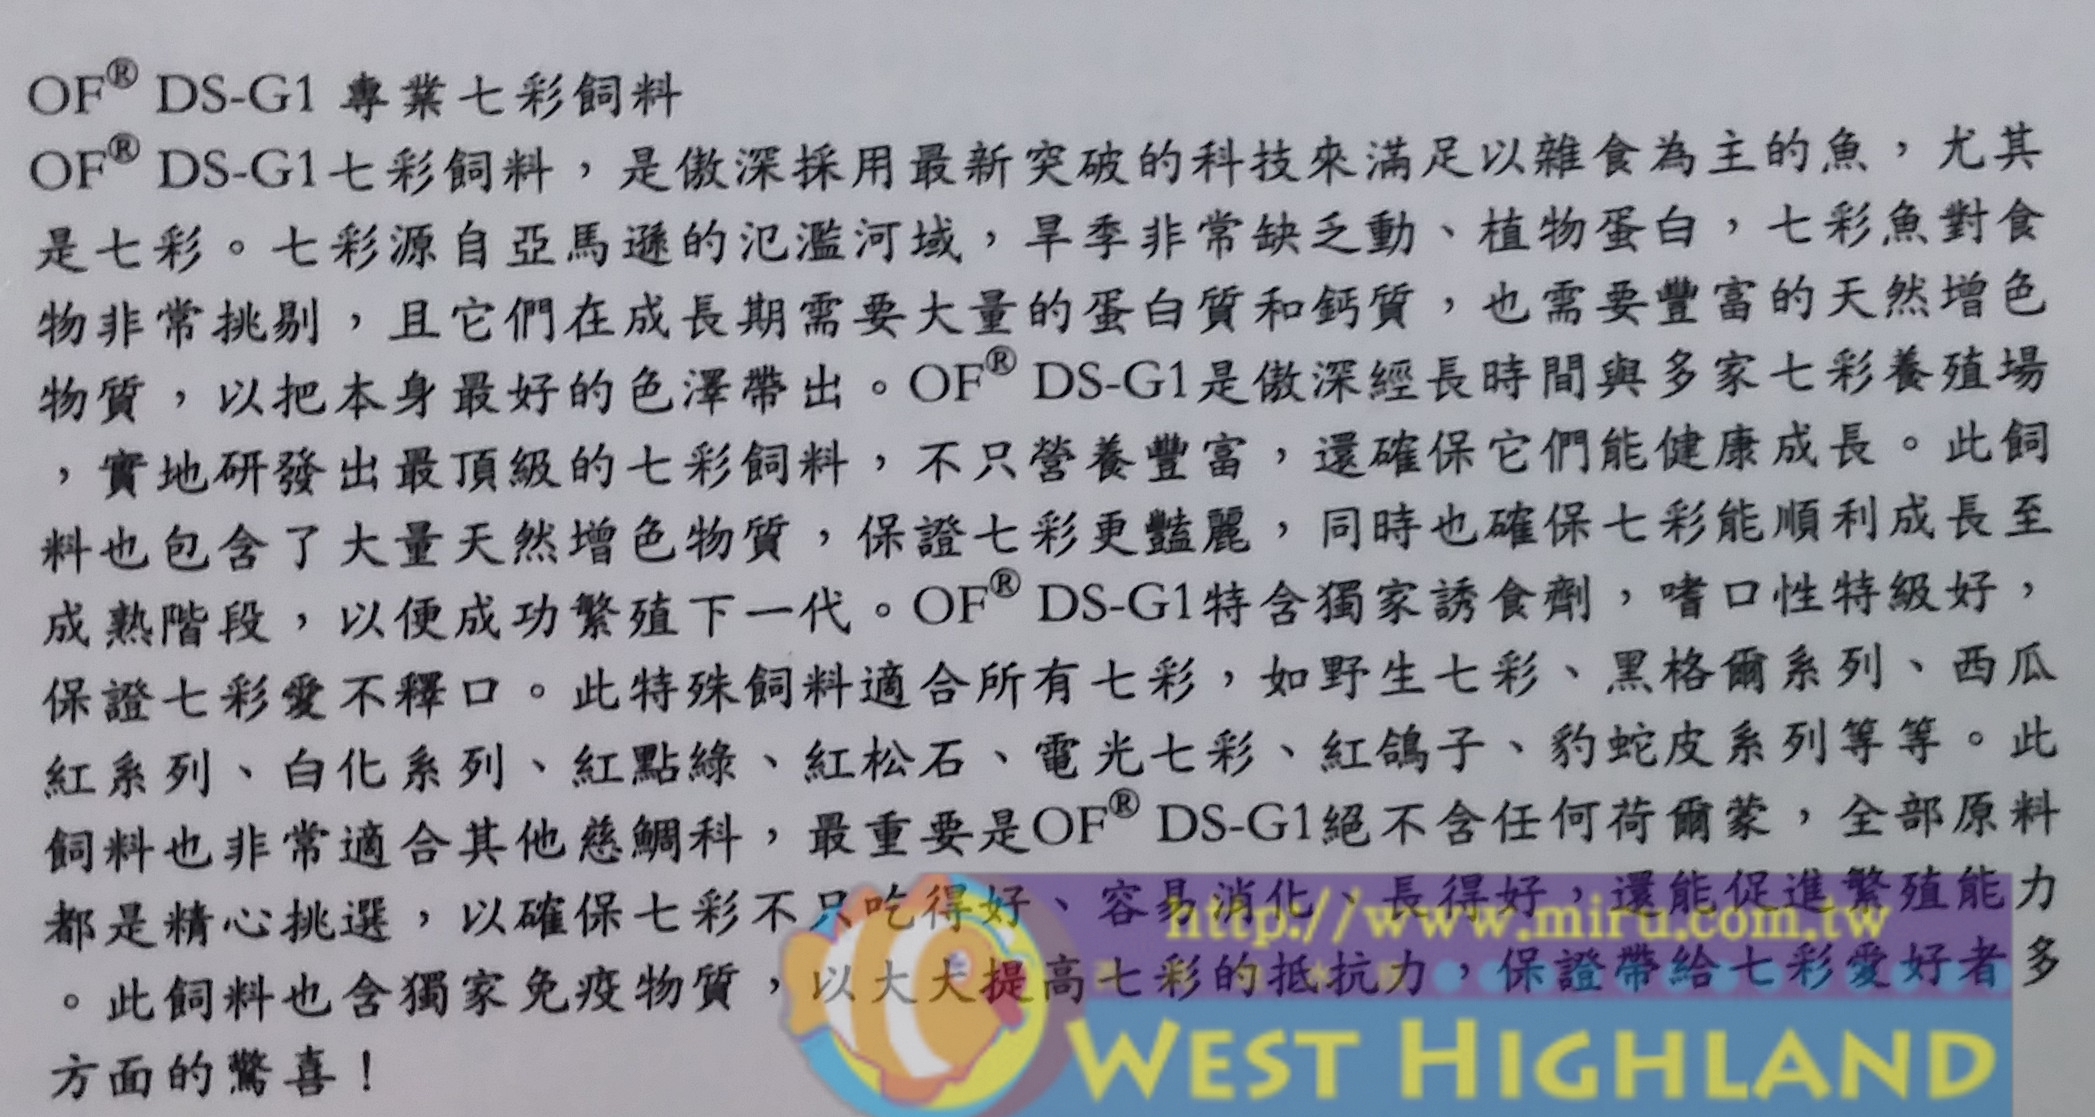 OF® DS-G1 專業七彩飼料
OF® DS-G1七彩飼料，是傲深採用最新突破的科技來滿足以雜食為主的魚，尤其
是七彩。七彩源自亞馬遜的氾濫河域，旱季非常缺乏動、植物蛋白，七彩魚對食
物非常挑剔，且它們在成長期需要大量的蛋白質和鈣質，也需要豐富的天然增色
物質，以把本身最好的色澤帶出。OF® DS-G1是傲深經長時間與多家七彩養殖場
，實地研發出最頂級的七彩飼料，不只營養豐富，還確保它們能健康成長。此飼
料也包含了大量天然增色物質，保證七彩更豔麗，同時也確保七彩能順利成長至
成熟階段，以便成功繁殖下一代。OF® DS-G1特含獨家誘食劑，嗜口性特級好，
保證七彩愛不釋口。此特殊飼料適合所有七彩，如野生七彩、黑格爾系列、西瓜
紅系列、白化系列、紅點綠、紅松石、電光七彩、紅鴿子、豹蛇皮系列等等。此
飼料也非常適合其他慈鯛科，最重要是OF® DS-G1絕不含任何荷爾蒙，全部原料
都是精心挑選，以確保七彩不只吃得好、容易消化、長得好，還能促進繁殖能力
http://www.miru.com.tw
。此飼料也含獨家免疫物質，以大大提高七彩的抵抗力，保證帶給七彩愛好者多
WEST HIGHLAND
方面的驚喜！